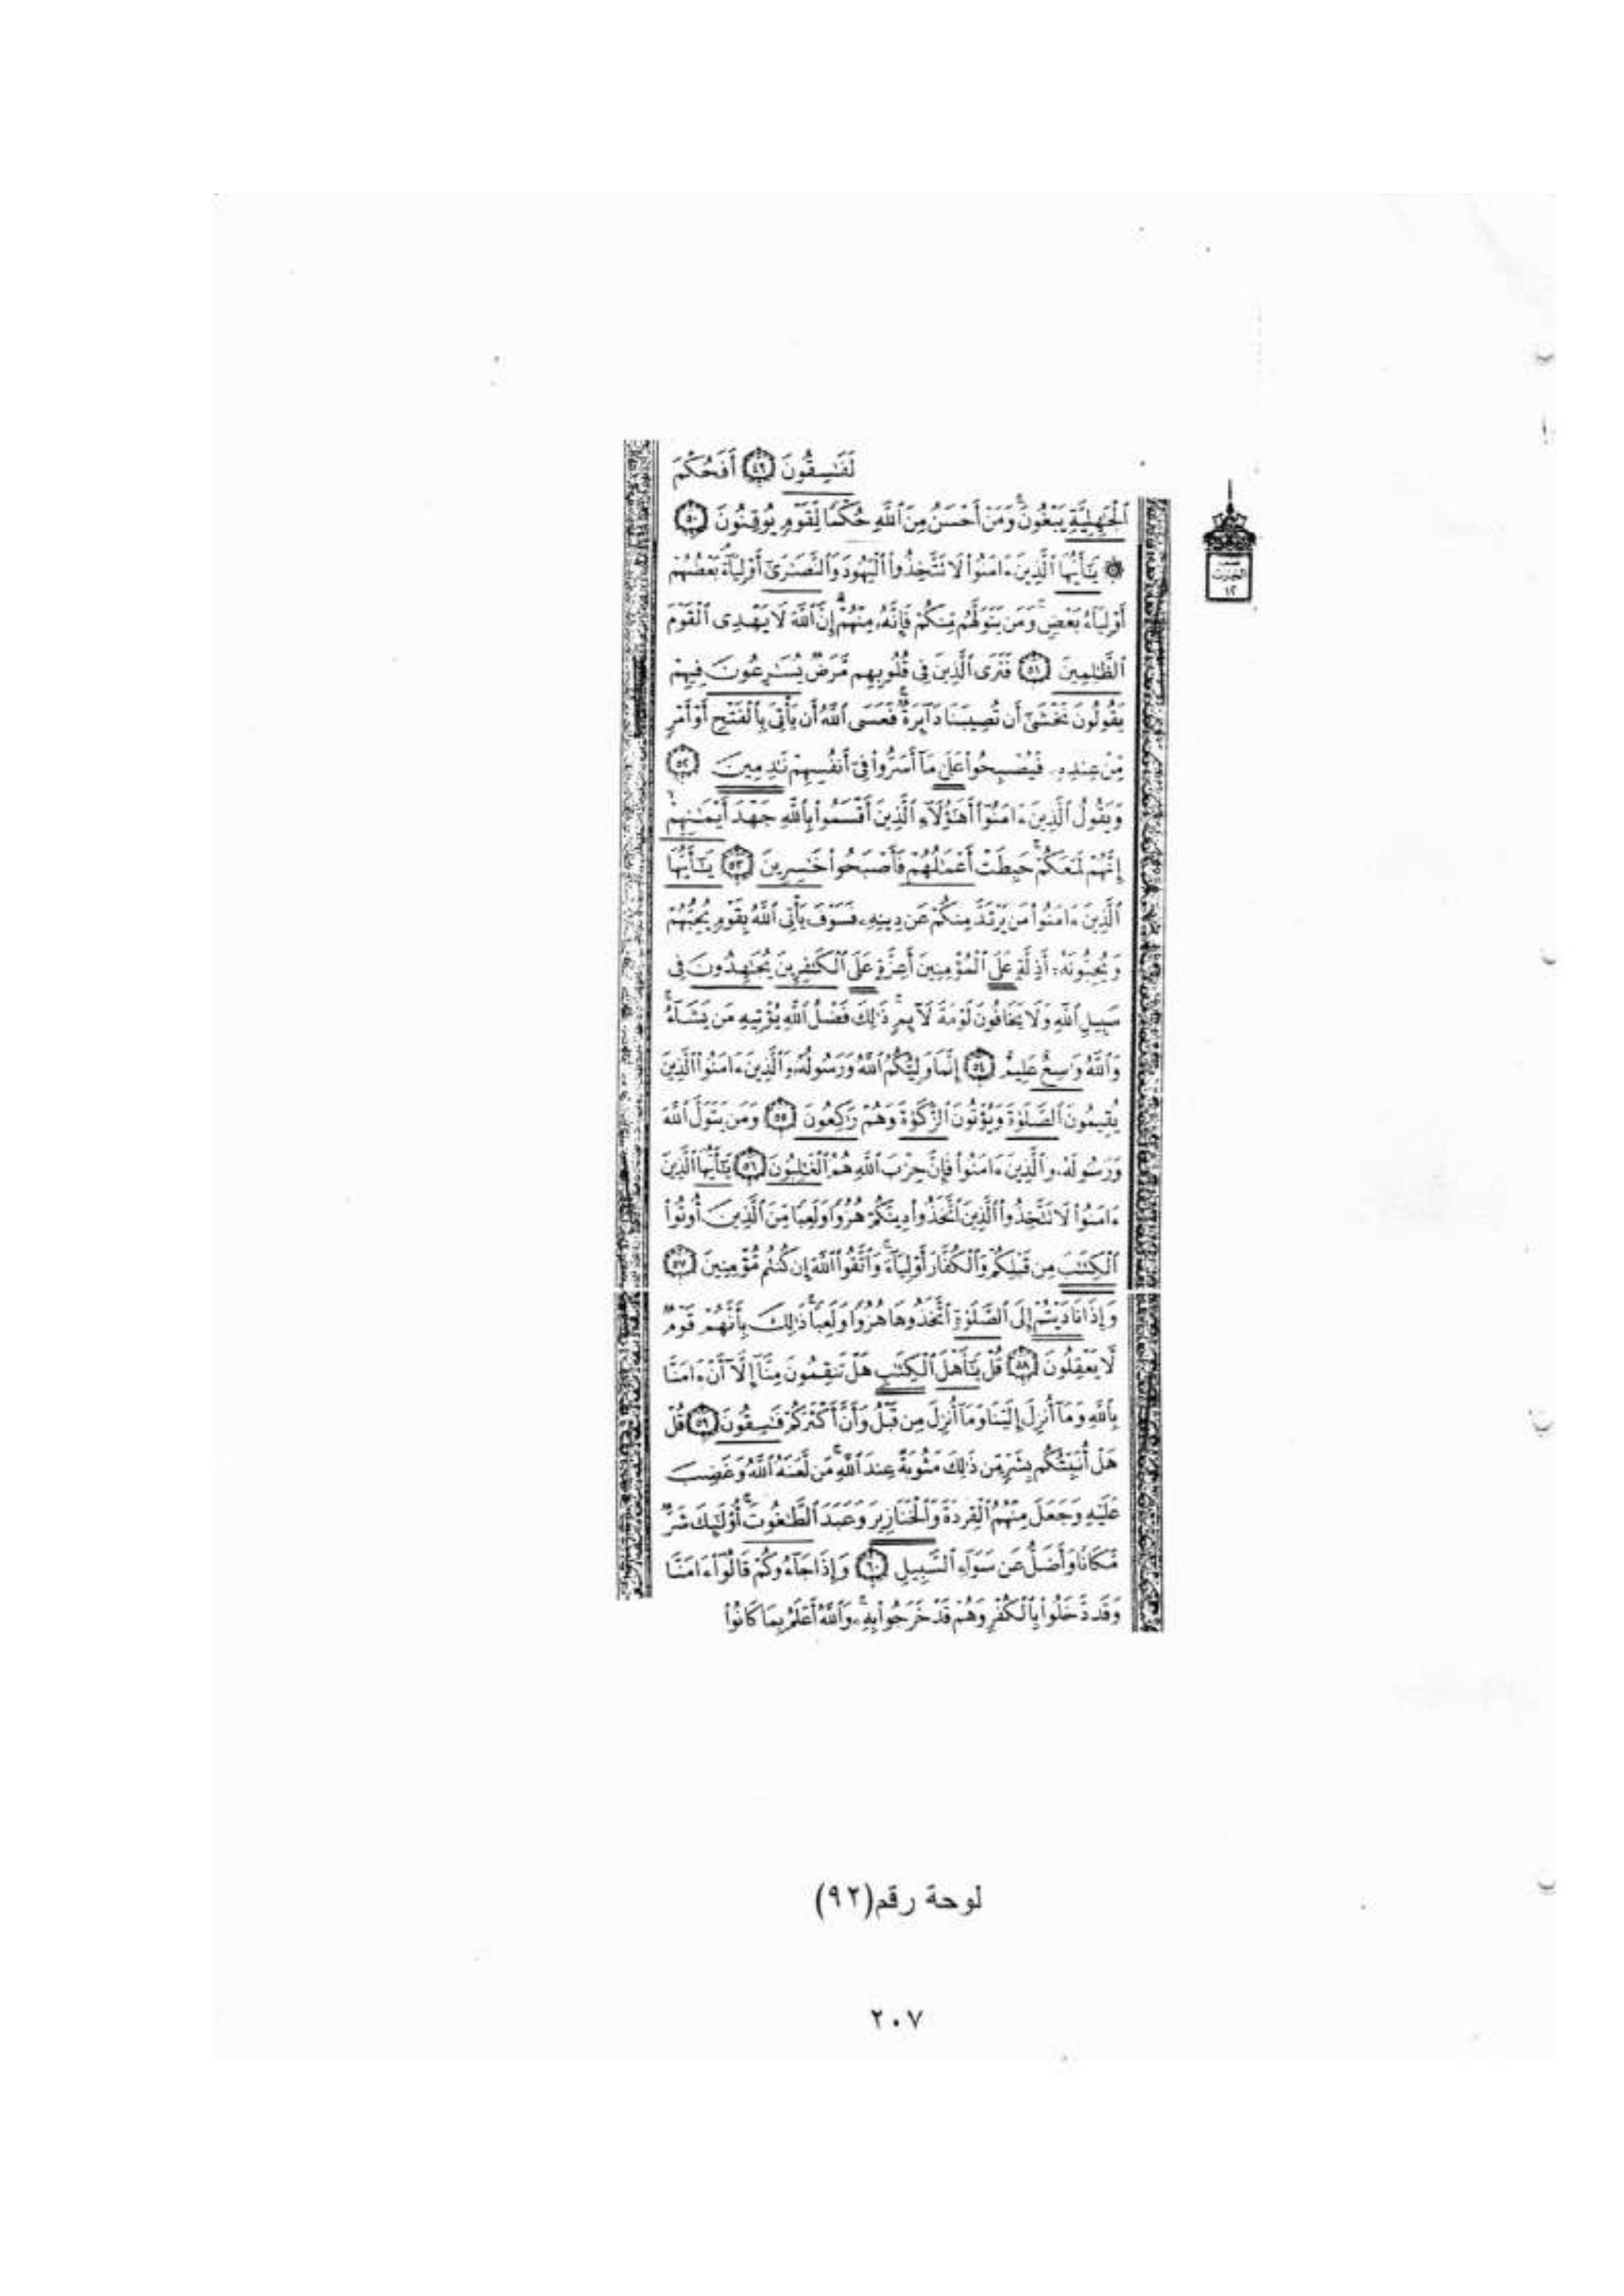 لَفَٰسِقُونَ ٤٩ أَفَحُكْمَ
ٱلْجَٰهِلِيَّةِ يَبْغُونَۚ وَمَنْ أَحْسَنُ مِنَ ٱللَّهِ حُكْمًا لِّقَوْمٍ يُوقِنُونَ ٥٠
۞ يَٰٓأَيُّهَا ٱلَّذِينَ ءَامَنُوا۟ لَا تَتَّخِذُوا۟ ٱلْيَهُودَ وَٱلنَّصَٰرَىٰٓ أَوْلِيَآءَۘ بَعْضُهُمْ
أَوْلِيَآءُ بَعْضٍۚ وَمَن يَتَوَلَّهُم مِّنكُمْ فَإِنَّهُۥ مِنْهُمْۗ إِنَّ ٱللَّهَ لَا يَهْدِى ٱلْقَوْمَ
ٱلظَّٰلِمِينَ ٥١ فَتَرَى ٱلَّذِينَ فِى قُلُوبِهِم مَّرَضٌ يُسَٰرِعُونَ فِيهِمْ
يَقُولُونَ نَخْشَىٰٓ أَن تُصِيبَنَا دَآئِرَةٌۚ فَعَسَى ٱللَّهُ أَن يَأْتِىَ بِٱلْفَتْحِ أَوْ أَمْرٍ
مِّنْ عِندِهِۦ فَيُصْبِحُوا۟ عَلَىٰ مَآ أَسَرُّوا۟ فِىٓ أَنفُسِهِمْ نَٰدِمِينَ ٥٢
وَيَقُولُ ٱلَّذِينَ ءَامَنُوٓا۟ أَهَٰٓؤُلَآءِ ٱلَّذِينَ أَقْسَمُوا۟ بِٱللَّهِ جَهْدَ أَيْمَٰنِهِمْۙ
إِنَّهُمْ لَمَعَكُمْۚ حَبِطَتْ أَعْمَٰلُهُمْ فَأَصْبَحُوا۟ خَٰسِرِينَ ٥٣ يَٰٓأَيُّهَا
ٱلَّذِينَ ءَامَنُوا۟ مَن يَرْتَدَّ مِنكُمْ عَن دِينِهِۦ فَسَوْفَ يَأْتِى ٱللَّهُ بِقَوْمٍ يُحِبُّهُمْ
وَيُحِبُّونَهُۥٓ أَذِلَّةٍ عَلَى ٱلْمُؤْمِنِينَ أَعِزَّةٍ عَلَى ٱلْكَٰفِرِينَ يُجَٰهِدُونَ فِى
سَبِيلِ ٱللَّهِ وَلَا يَخَافُونَ لَوْمَةَ لَآئِمٍۚ ذَٰلِكَ فَضْلُ ٱللَّهِ يُؤْتِيهِ مَن يَشَآءُۚ
وَٱللَّهُ وَٰسِعٌ عَلِيمٌ ٥٤ إِنَّمَا وَلِيُّكُمُ ٱللَّهُ وَرَسُولُهُۥ وَٱلَّذِينَ ءَامَنُوا۟ ٱلَّذِينَ
يُقِيمُونَ ٱلصَّلَوٰةَ وَيُؤْتُونَ ٱلزَّكَوٰةَ وَهُمْ رَٰكِعُونَ ٥٥ وَمَن يَتَوَلَّ ٱللَّهَ
وَرَسُولَهُۥ وَٱلَّذِينَ ءَامَنُوا۟ فَإِنَّ حِزْبَ ٱللَّهِ هُمُ ٱلْغَٰلِبُونَ ٥٦ يَٰٓأَيُّهَا ٱلَّذِينَ
ءَامَنُوا۟ لَا تَتَّخِذُوا۟ ٱلَّذِينَ ٱتَّخَذُوا۟ دِينَكُمْ هُزُوًا وَلَعِبًا مِّنَ ٱلَّذِينَ أُوتُوا۟
ٱلْكِتَٰبَ مِن قَبْلِكُمْ وَٱلْكُفَّارَ أَوْلِيَآءَۚ وَٱتَّقُوا۟ ٱللَّهَ إِن كُنتُم مُّؤْمِنِينَ ٥٧
وَإِذَا نَادَيْتُمْ إِلَى ٱلصَّلَوٰةِ ٱتَّخَذُوهَا هُزُوًا وَلَعِبًاۚ ذَٰلِكَ بِأَنَّهُمْ قَوْمٌ
لَّا يَعْقِلُونَ ٥٨ قُلْ يَٰٓأَهْلَ ٱلْكِتَٰبِ هَلْ تَنقِمُونَ مِنَّآ إِلَّآ أَنْ ءَامَنَّا
بِٱللَّهِ وَمَآ أُنزِلَ إِلَيْنَا وَمَآ أُنزِلَ مِن قَبْلُ وَأَنَّ أَكْثَرَكُمْ فَٰسِقُونَ ٥٩ قُلْ
هَلْ أُنَبِّئُكُم بِشَرٍّ مِّن ذَٰلِكَ مَثُوبَةً عِندَ ٱللَّهِۚ مَن لَّعَنَهُ ٱللَّهُ وَغَضِبَ
عَلَيْهِ وَجَعَلَ مِنْهُمُ ٱلْقِرَدَةَ وَٱلْخَنَازِيرَ وَعَبَدَ ٱلطَّٰغُوتَۚ أُو۟لَٰٓئِكَ شَرٌّ
مَّكَانًا وَأَضَلُّ عَن سَوَآءِ ٱلسَّبِيلِ ٦٠ وَإِذَا جَآءُوكُمْ قَالُوٓا۟ ءَامَنَّا
وَقَد دَّخَلُوا۟ بِٱلْكُفْرِ وَهُمْ قَدْ خَرَجُوا۟ بِهِۦۚ وَٱللَّهُ أَعْلَمُ بِمَا كَانُوا۟
١٢
لوحة رقم(٩٢)
٢٠٧